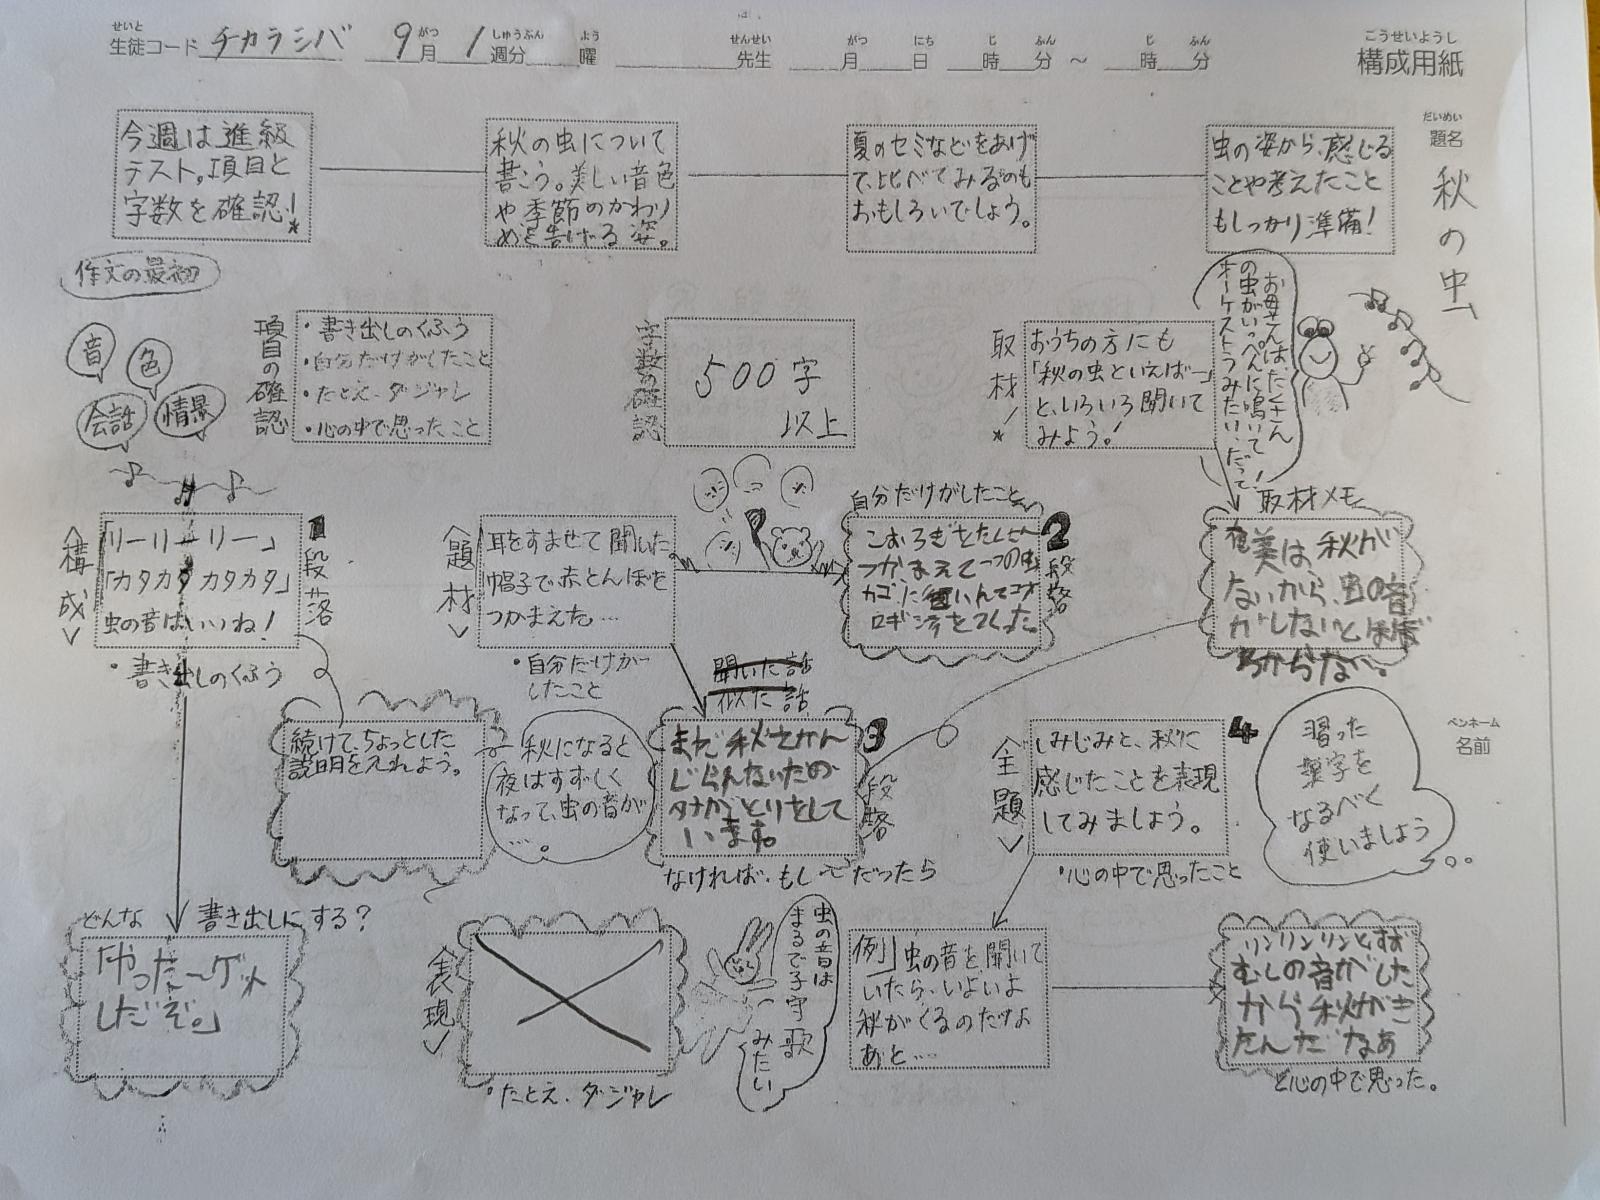 せいと
生徒コード チカラシバ 9月 1週分 曜 先生 月 日 時 分 ～ 時 分
がつ しゅうぶん よう せんせい がつ にち じ ふん じ ふん
こうせいようし
構成用紙
だいめい
題名
秋の虫
虫の姿から、感じる
ことや考えたこと
もしっかり準備！
夏のセミなどをあげ
て、比べてみるのも
おもしろいでしょう。
秋の虫について
書こう。美しい音色
や季節のかわり
めを告げる姿。
今週は進級
テスト。項目と
字数を確認！
作文の最初
音
色
会話
情景
項目の確認
・書き出しのくふう
・自分だけがしたこと
・たとえ、ダジャレ
・心の中で思ったこと
字数の確認
500字
以上
取材！
おうちの方にも
「秋の虫といえば…」
と、いろいろ聞いて
みよう。！
お母さんは、たくさん
の虫がいっぺんに鳴いて
オーケストラみたい、だって！
取材メモ
奄美は、秋が
ないから、虫の音
がしないとほぼ
わからない。
構成
1段落
「リーリーリー」
「カタカタ カタカタ」
虫の音はいいね！
・書き出しのくふう
題材
耳をすませて聞いた。
帽子で赤とんぼを
つかまえた。…
・自分だけが
したこと
自分だけがしたこと
2段落
こおろぎをたくさん
つかまえて一つの虫
カゴに
聞いた話
似た話
続けて、ちょっとした
説明を入れよう。
秋になると
夜はすずしく
なって、虫の音が
…。
3段落
まだ秋をかん
じられないため
なければ、もし〜だったら
全題
4
しみじみと、秋に
感じたことを表現
してみましょう。
・心の中で思ったこと
習った
漢字を
なるべく
使いましょう
ペンネーム
名前
どんな 書き出しにする？
「やった〜ゲット
しだぞ。」
表現
・たとえ、ダジャレ
虫の音は
まるで子守歌
みたい
例」虫の音を聞いて
いたら、いよいよ
秋がくるのだなよ
あと…
リンリンリンとすず
むしの音がした
から秋がき
たんだなあ
と心の中で思った。